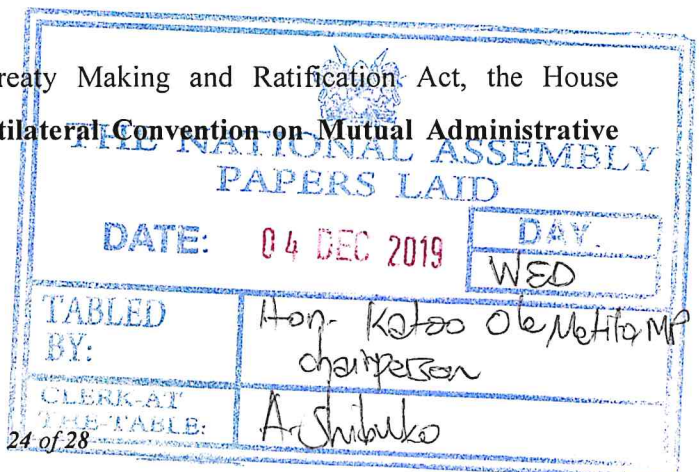 reaty Making and Ratification Act, the House
tilateral Convention on Mutual Administrative
THE NATIONAL ASSEMBLY
PAPERS LAID
DATE: 04 DEC 2019 DAY.
WED
TABLED BY: Hon. Katoo Ole Metito MP
chairperson
CLERK-AT THE-TABLE: A. Shibuko
24 of 28